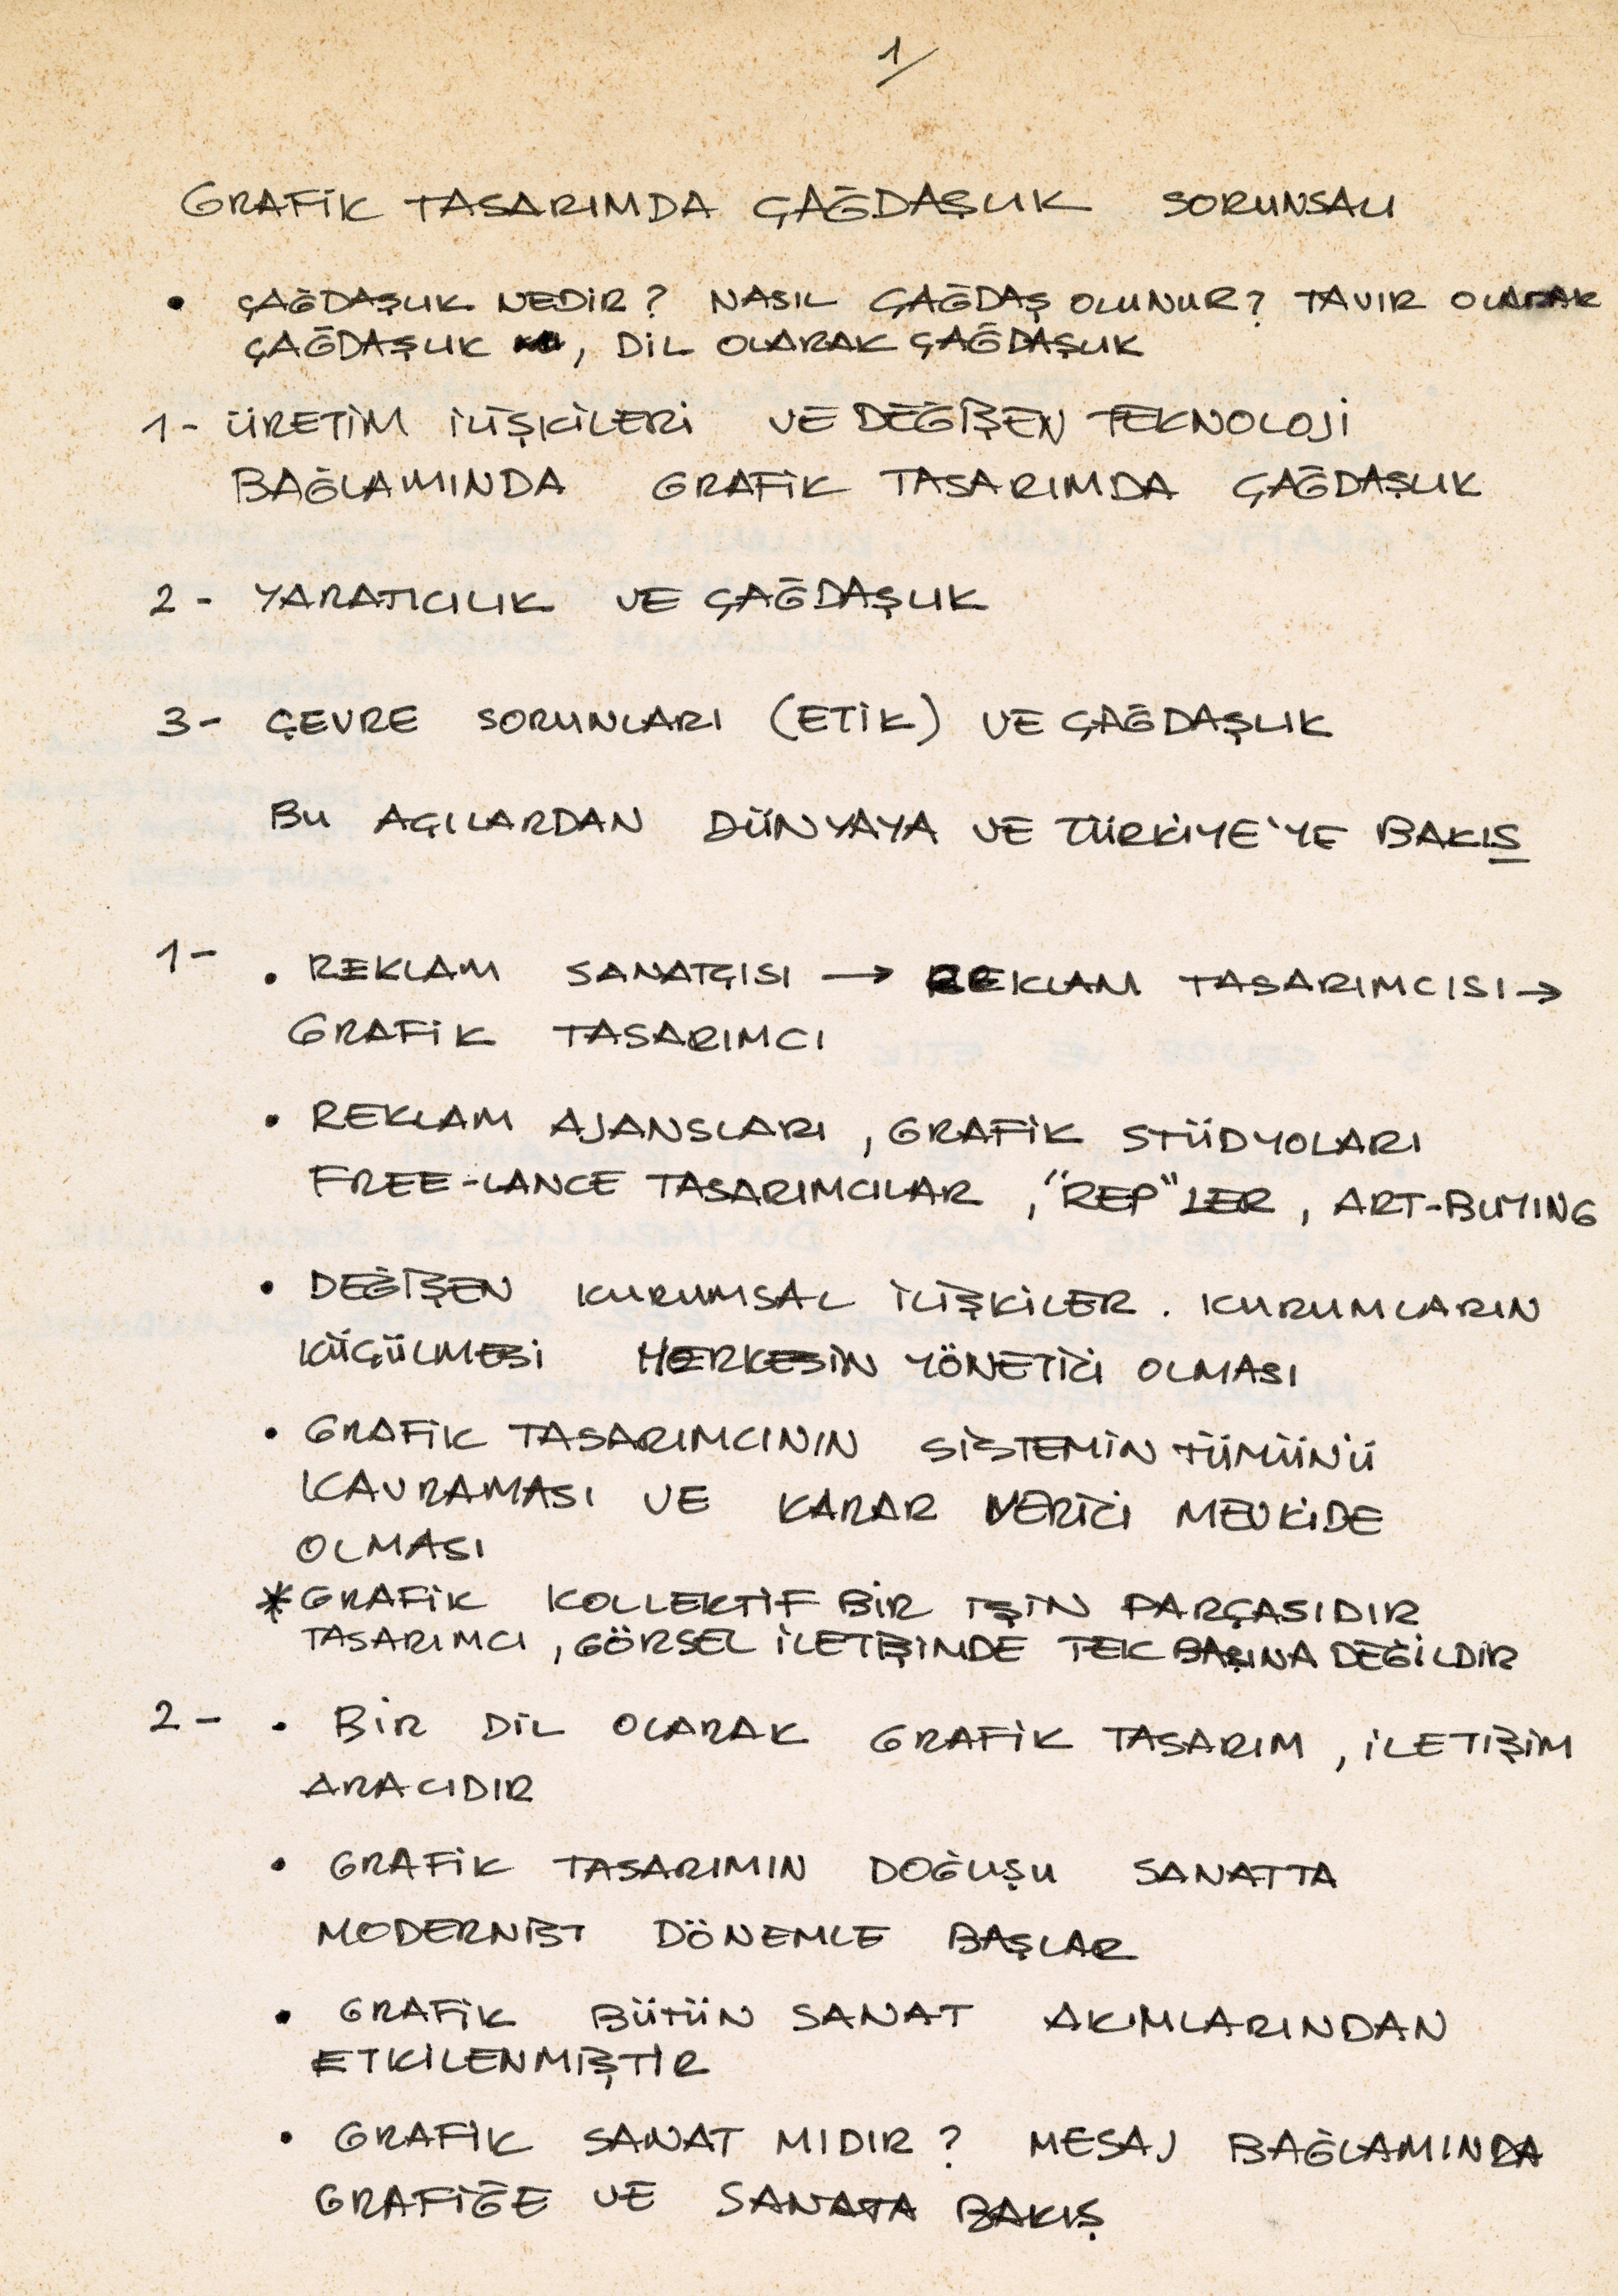 1/
GRAFİK TASARIMDA ÇAĞDAŞLIK SORUNSALI
• ÇAĞDAŞLIK NEDİR? NASIL ÇAĞDAŞ OLUNUR? TAVIR OLARAK
ÇAĞDAŞLIK , DİL OLARAK ÇAĞDAŞLIK
1- ÜRETİM İLİŞKİLERİ VE DEĞİŞEN TEKNOLOJİ
BAĞLAMINDA GRAFİK TASARIMDA ÇAĞDAŞLIK
2- YARATICILIK VE ÇAĞDAŞLIK
3- ÇEVRE SORUNLARI (ETİK) VE ÇAĞDAŞLIK
BU AÇILARDAN DÜNYAYA VE TÜRKİYE'YE BAKIŞ
1- • REKLAM SANATÇISI → REKLAM TASARIMCISI →
GRAFİK TASARIMCI
• REKLAM AJANSLARI, GRAFİK STÜDYOLARI
FREE-LANCE TASARIMCILAR, "REP"LER, ART-BUYING
• DEĞİŞEN KURUMSAL İLİŞKİLER. KURUMLARIN
KÜÇÜLMESİ HERKESİN YÖNETİCİ OLMASI
• GRAFİK TASARIMCININ SİSTEMİN TÜMÜNÜ
KAVRAMASI VE KARAR VERİCİ MEVKİDE
OLMASI
* GRAFİK KOLLEKTİF BİR İŞİN PARÇASIDIR
TASARIMCI, GÖRSEL İLETİŞİMDE TEK BAŞINA DEĞİLDİR
2- • BİR DİL OLARAK GRAFİK TASARIM, İLETİŞİM
ARACIDIR
• GRAFİK TASARIMIN DOĞUŞU SANATTA
MODERNİST DÖNEMLE BAŞLAR
• GRAFİK BÜTÜN SANAT AKIMLARINDAN
ETKİLENMİŞTİR
• GRAFİK SANAT MIDIR? MESAJ BAĞLAMINDA
GRAFİĞE VE SANATA BAKIŞ